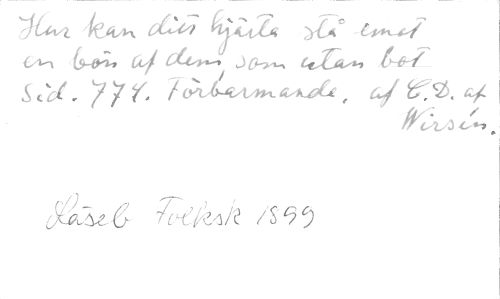 Hur kan ditt hjärta stå emot
en bön af dem, som utan bot
Sid. 774. Förbarmande, af C.D. af
Wirsén.
Läseb Folksk 1899